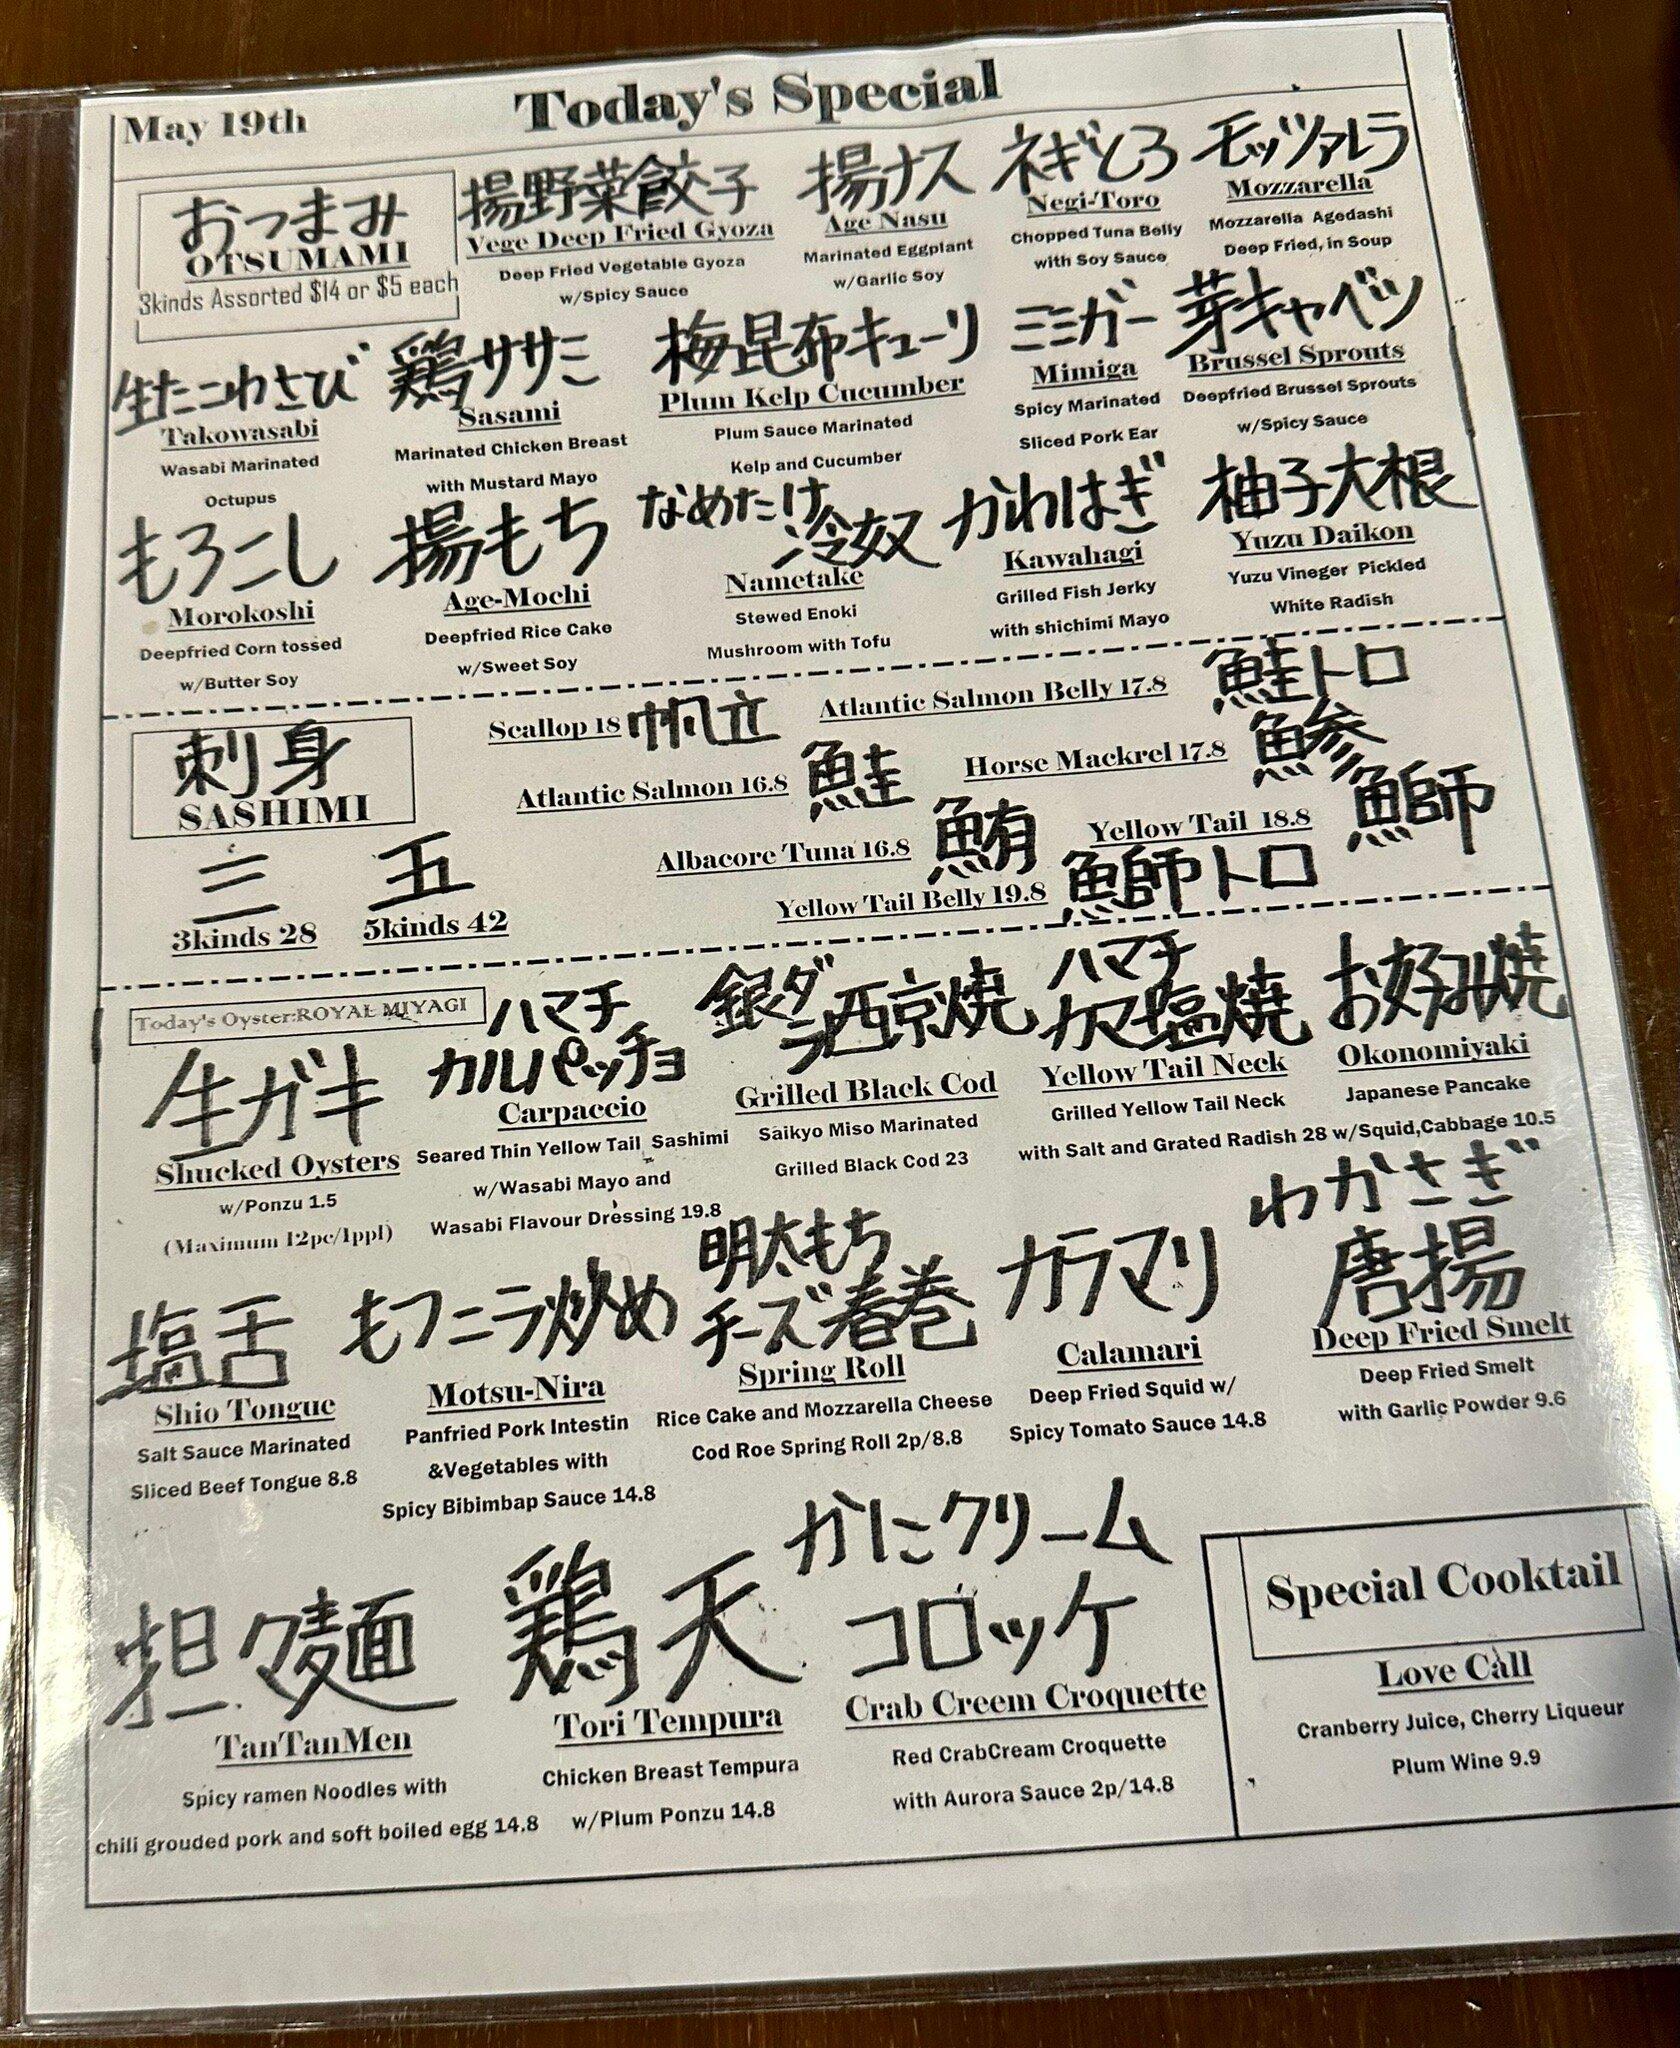 May 19th
Today's Special
おつまみ
OTSUMAMI
3kinds Assorted $14 or $5 each
揚野菜餃子
Vege Deep Fried Gyoza
Deep Fried Vegetable Gyoza
w/Spicy Sauce
揚ナス
Age Nasu
Marinated Eggplant
w/Garlic Soy
ネギとろ
Negi-Toro
Chopped Tuna Belly
with Soy Sauce
モッツァレラ
Mozzarella
Mozzarella Agedashi
Deep Fried, in Soup
生たこわさび
Takowasabi
Wasabi Marinated
Octupus
鶏ササミ
Sasami
Marinated Chicken Breast
with Mustard Mayo
梅昆布キューリ
Plum Kelp Cucumber
Plum Sauce Marinated
Kelp and Cucumber
ミミガー
Mimiga
Spicy Marinated
Sliced Pork Ear
芽キャベツ
Brussel Sprouts
Deepfried Brussel Sprouts
w/Spicy Sauce
もろこし
Morokoshi
Deepfried Corn tossed
w/Butter Soy
揚もち
Age-Mochi
Deepfried Rice Cake
w/Sweet Soy
なめたけ
冷奴
Nametake
Stewed Enoki
Mushroom with Tofu
かわはぎ
Kawahagi
Grilled Fish Jerky
with shichimi Mayo
柚子大根
Yuzu Daikon
Yuzu Vineger Pickled
White Radish
刺身
SASHIMI
三
3kinds 28
五
5kinds 42
Scallop 18 帆立
Atlantic Salmon Belly 17.8 鮭トロ
Atlantic Salmon 16.8 鮭
Horse Mackrel 17.8 鯵
Albacore Tuna 16.8 鮪
Yellow Tail 18.8 鰤
Yellow Tail Belly 19.8 鰤トロ
Today's Oyster:ROYAL MIYAGI
生ガキ
Shucked Oysters
w/Ponzu 1.5
(Maximum 12pc/1ppl)
ハマチ
カルパッチョ
Carpaccio
Seared Thin Yellow Tail Sashimi
w/Wasabi Mayo and
Wasabi Flavour Dressing 19.8
銀ダラ西京焼
Grilled Black Cod
Saikyo Miso Marinated
Grilled Black Cod 23
ハマチ
カマ塩焼
Yellow Tail Neck
Grilled Yellow Tail Neck
with Salt and Grated Radish 28
お好み焼
Okonomiyaki
Japanese Pancake
w/Squid,Cabbage 10.5
塩舌
Shio Tongue
Salt Sauce Marinated
Sliced Beef Tongue 8.8
もつニラ炒め
Motsu-Nira
Panfried Pork Intestin
&Vegetables with
Spicy Bibimbap Sauce 14.8
明太もち
チーズ春巻
Spring Roll
Rice Cake and Mozzarella Cheese
Cod Roe Spring Roll 2p/8.8
カラマリ
Calamari
Deep Fried Squid w/
Spicy Tomato Sauce 14.8
わかさぎ
唐揚
Deep Fried Smelt
Deep Fried Smelt
with Garlic Powder 9.6
担々麺
TanTanMen
Spicy ramen Noodles with
chili grouded pork and soft boiled egg 14.8
鶏天
Tori Tempura
Chicken Breast Tempura
w/Plum Ponzu 14.8
かにクリーム
コロッケ
Crab Creem Croquette
Red CrabCream Croquette
with Aurora Sauce 2p/14.8
Special Cooktail
Love Call
Cranberry Juice, Cherry Liqueur
Plum Wine 9.9